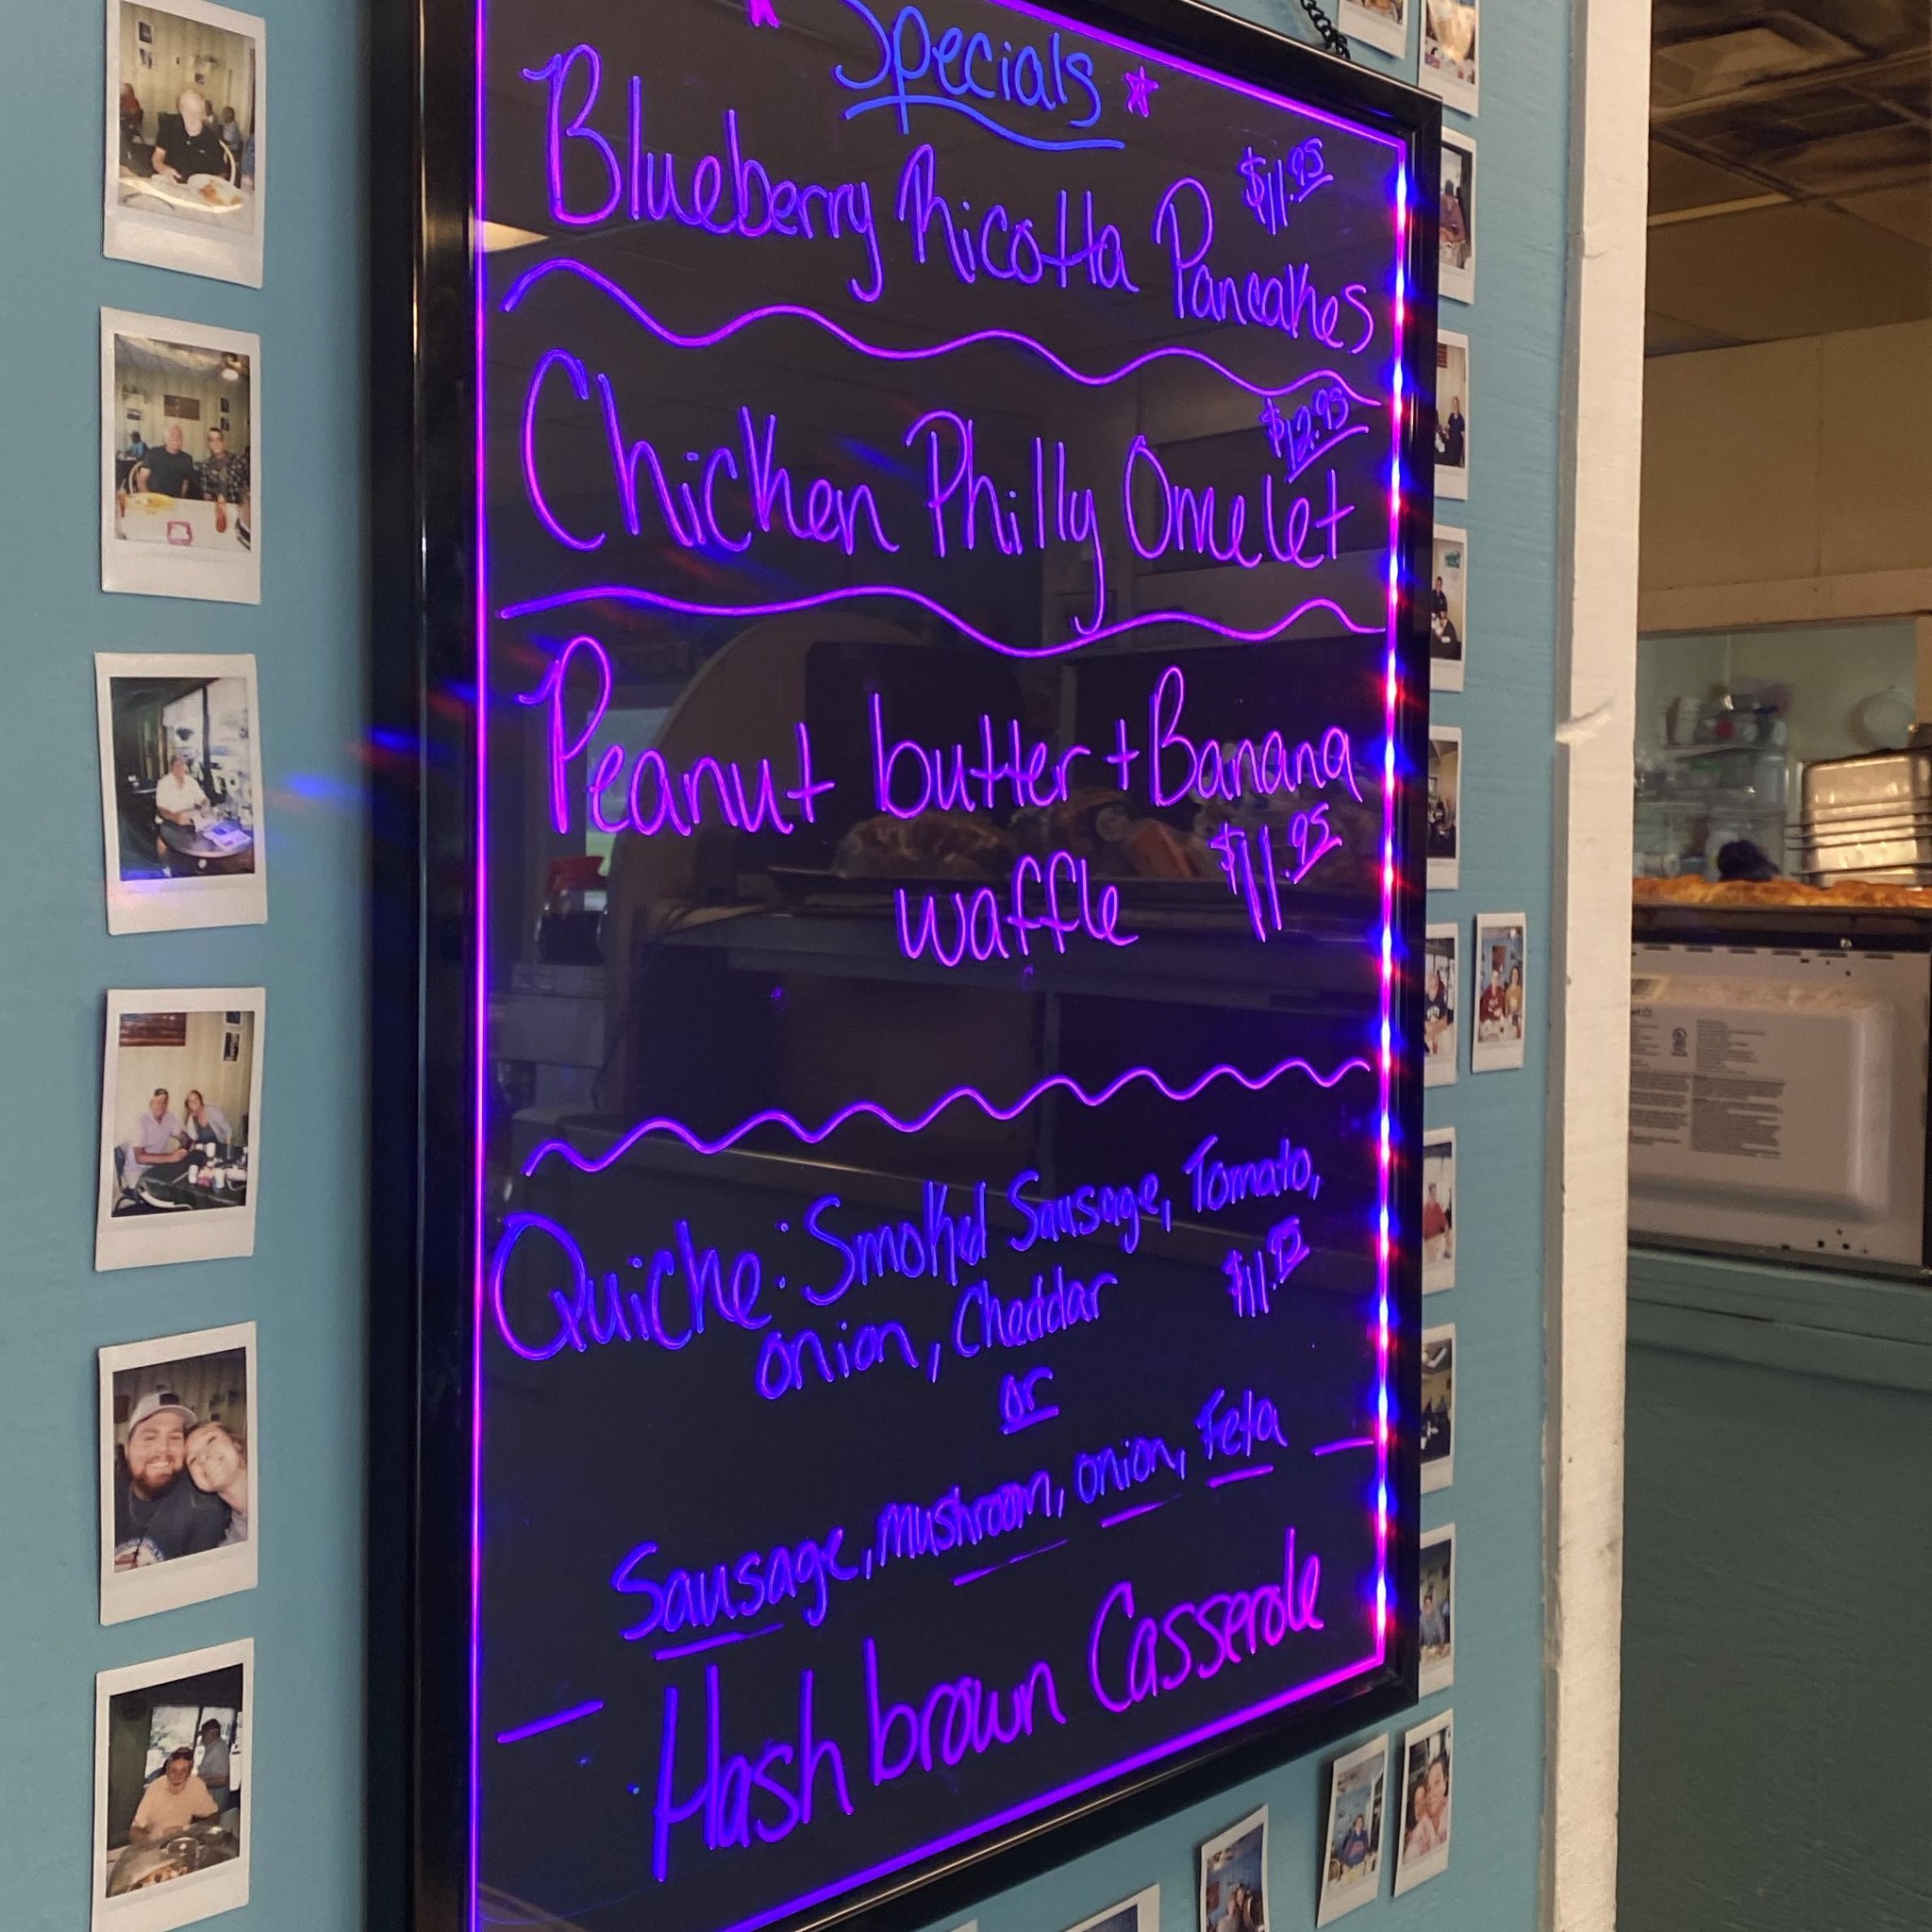 Specials
Blueberry Ricotta Pancakes $11.95
Chicken Philly Omelet $12.95
Peanut butter + Banana
waffle $11.95
Quiche: Smoked Sausage, Tomato,
onion, Cheddar $11.95
or
Sausage, mushroom, onion, Feta
Hash brown Casserole